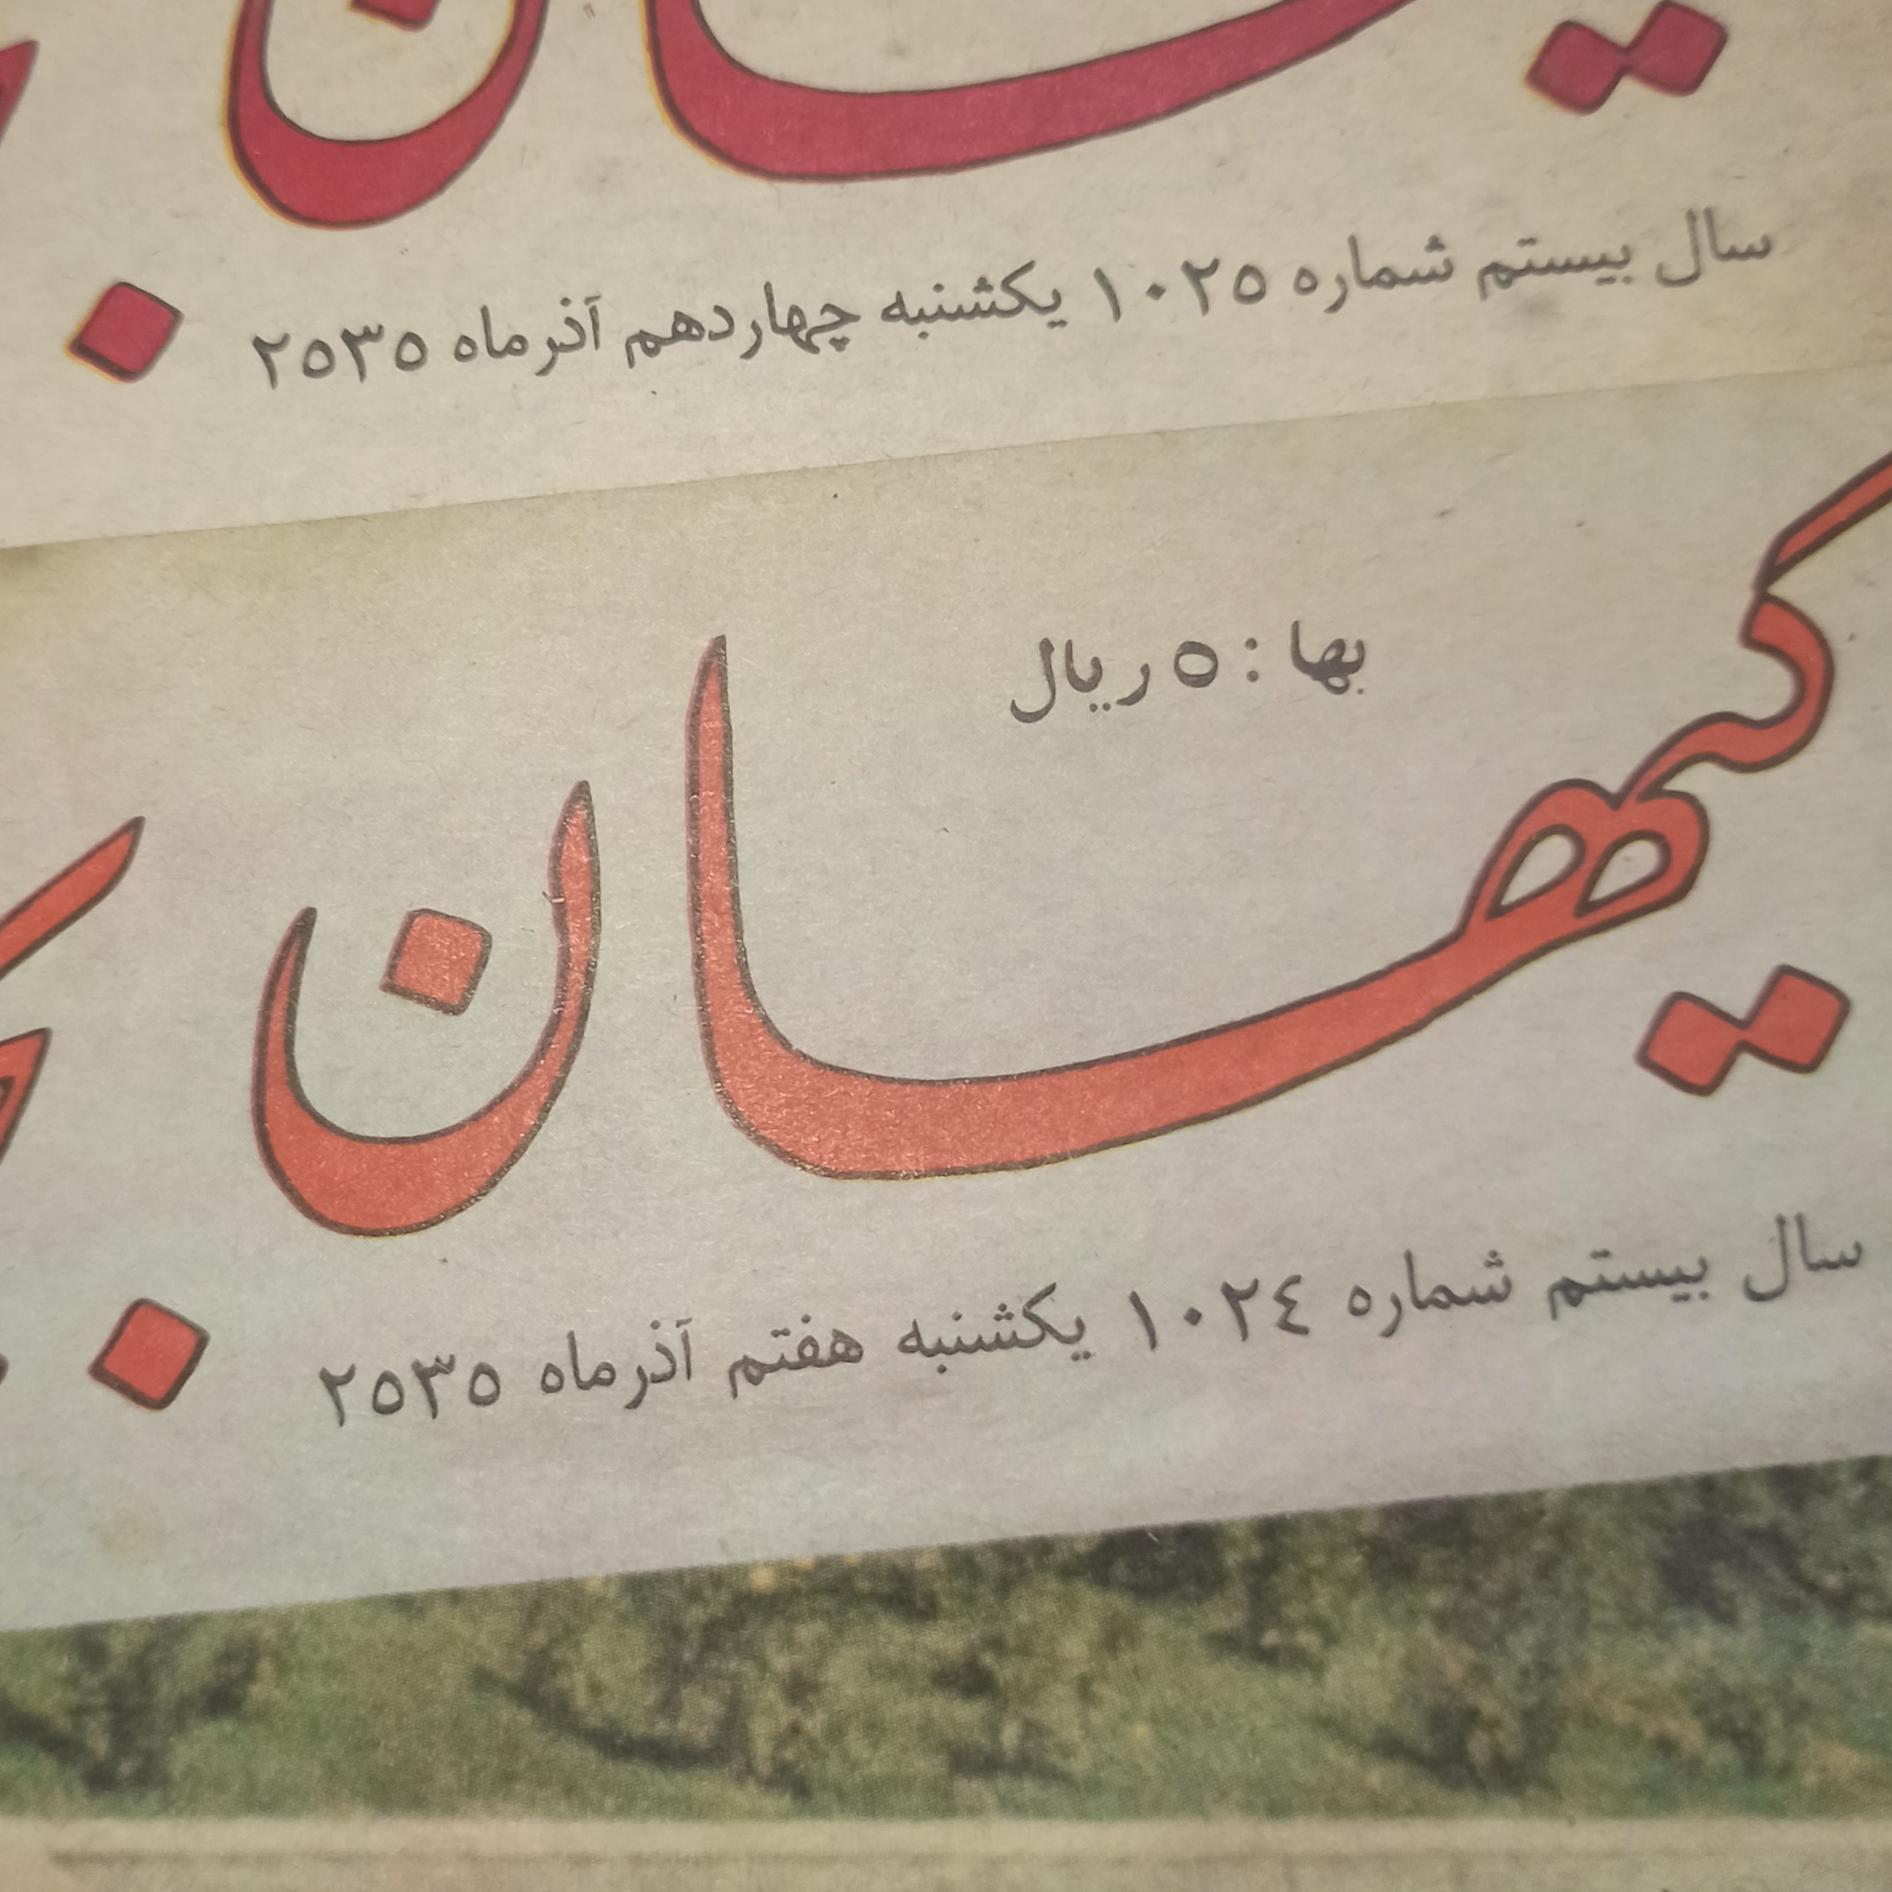 سال بیستم شماره ۱۰۲۵ یکشنبه چهاردهم آذرماه ۲۵۳۵
بها : ۵ ریال
کیهان
سال بیستم شماره ۱۰۲۴ یکشنبه هفتم آذرماه ۲۵۳۵